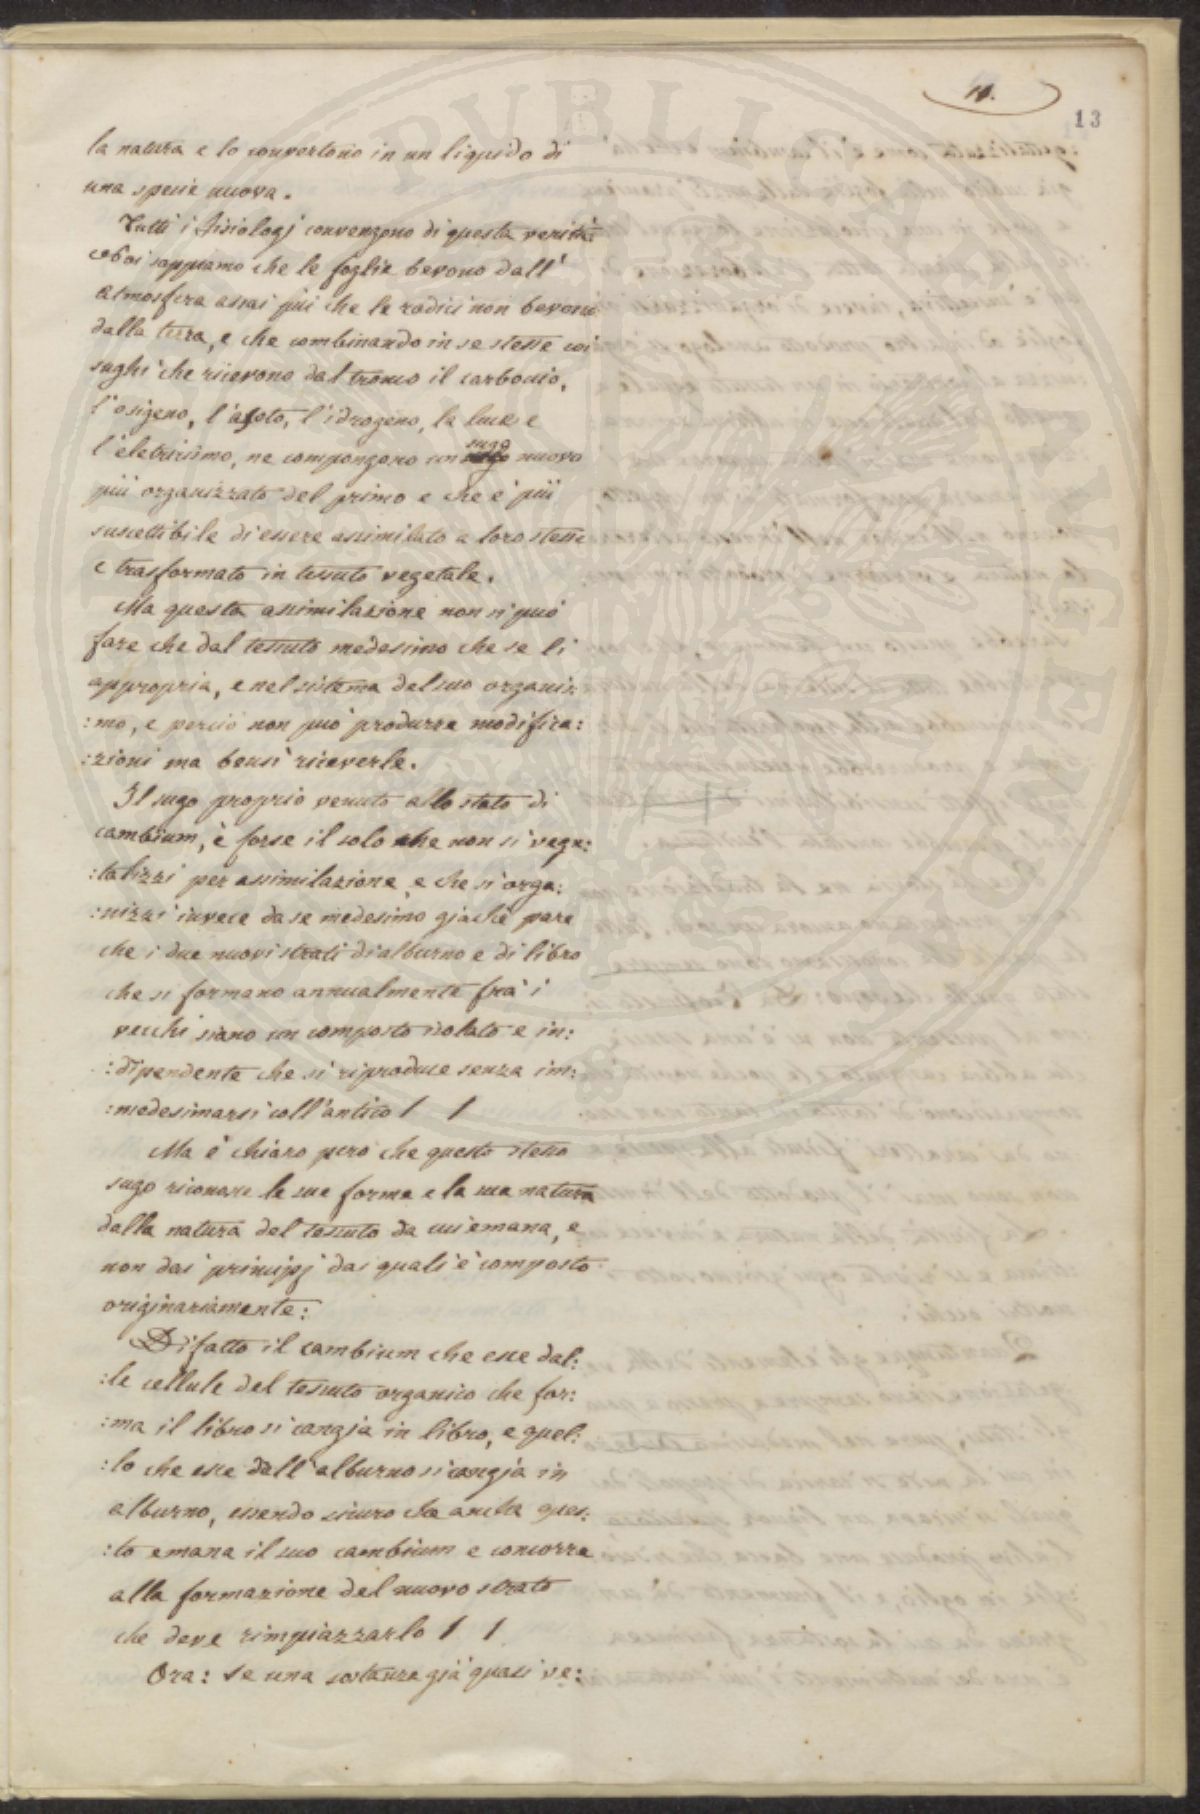 11.
13
la natura e lo convertono in un liquido di
una specie nuova.
Tutti i fisiologj convengono di questa verità:
noi sappiamo che le foglie bevono dall'
atmosfera assai più che le radici non bevono
dalla terra, e che combinando in se stesse coi
sughi che ricevono dal tronco il carbonio,
l'osigeno, l'azoto, l'idrogeno, la luce e
l'eletricismo, ne compongono un sugo nuovo
più organizzato del primo e che è più
suscettibile di essere assimilato a loro stesse
e trasformato in tessuto vegetale.
Ma questa assimilazione non si può
fare che dal tessuto medesimo che se li
appropria, e nel sistema del suo organiz:
:mo, e perciò non può produrre modifica:
:zioni ma bensì riceverle.
Il sugo proprio venuto allo stato di
cambium, è forse il solo che non si vege:
:talizzi per assimilazione, e che si orga:
:nizzi invece da se medesimo giachè pare
che i due nuovi strati di alburno e di libro
che si formano annualmente frà i
vecchi siano un composto isolato e in:
:dipendente che si riproduce senza im:
:medesimarsi coll'antico / /
Ma è chiaro però che questo stesso
sugo riconosce le sue forme e la sua natura
dalla natura del tessuto da cui emana, e
non dai principj dai quali è composto
originariamente:
Difatto il cambium che esce dal:
:le cellule del tessuto organico che for:
:ma il libro si cangia in libro, e quel:
:lo che esce dall'alburno si cangia in
alburno, essendo sicuro che anche ques:
:to emana il suo cambium e concorre
alla formazione del nuovo strato
che deve rimpiazzarlo / /
Ora: se una sostanza già quasi ve:
PUBLICA